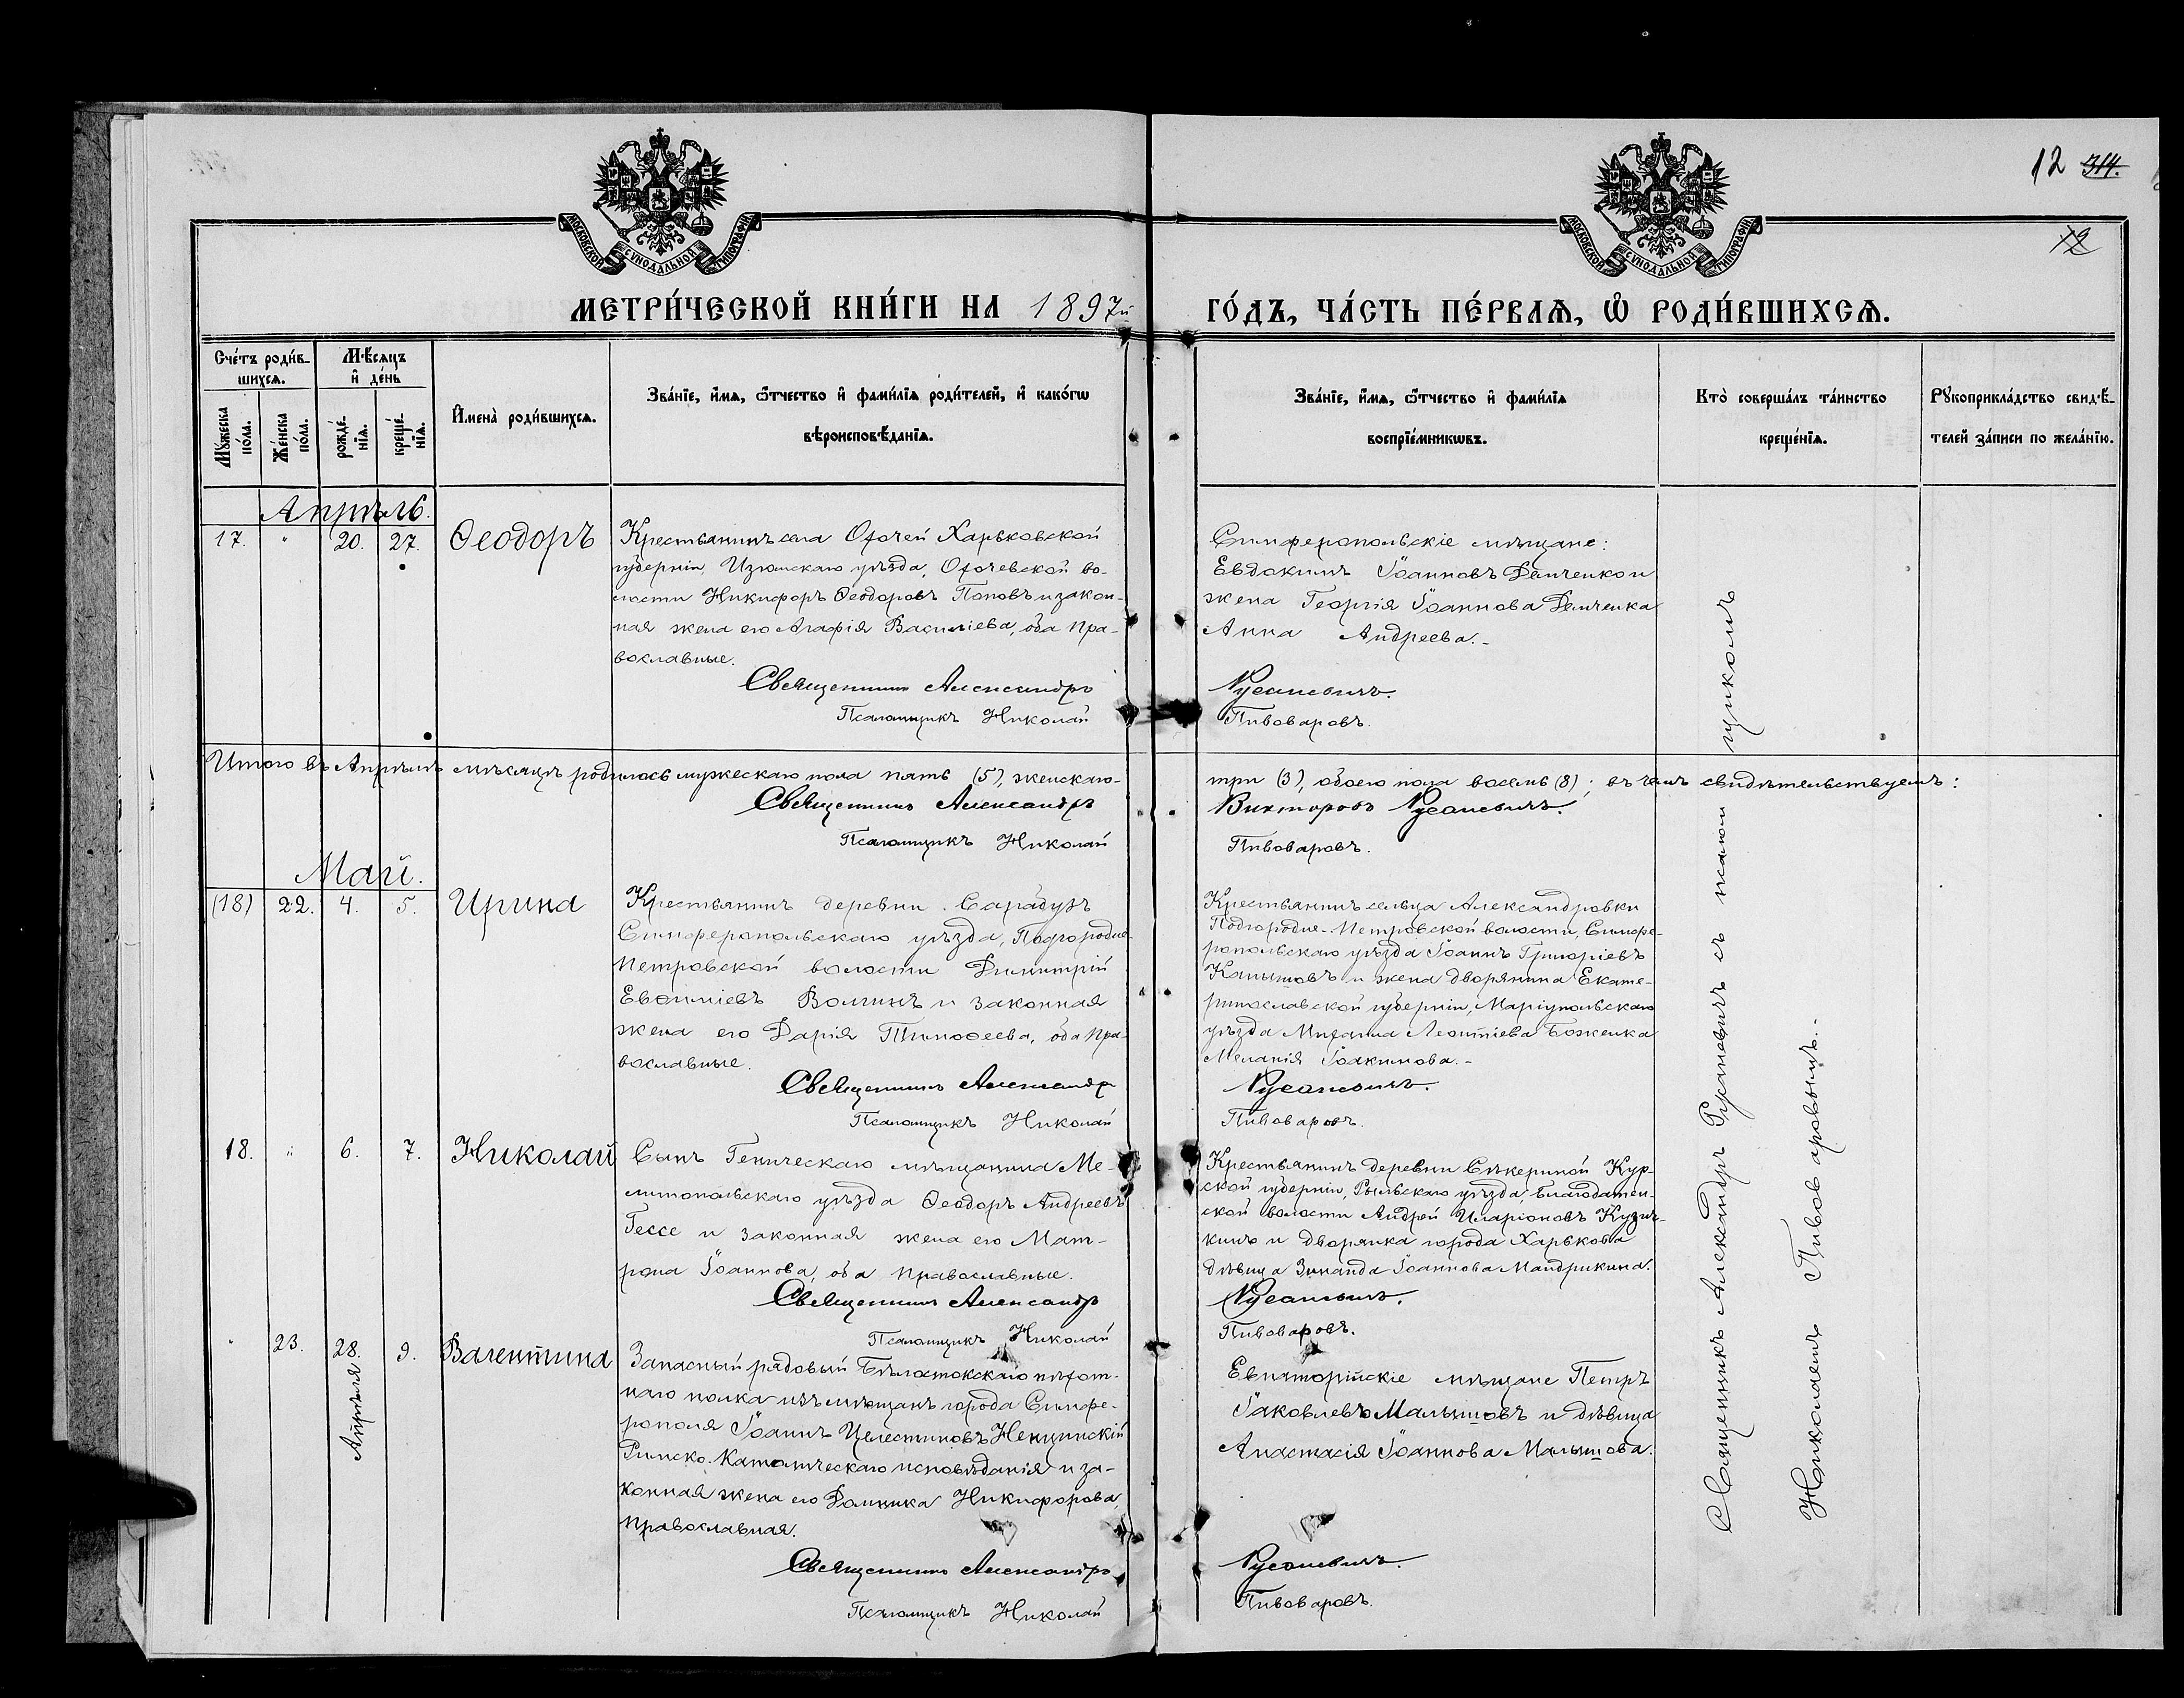 12 314.
12
МОСКОВСКОЙ СѴНОДАЛЬНОЙ ТИПОГРАФІИ
МОСКОВСКОЙ СѴНОДАЛЬНОЙ ТИПОГРАФІИ
МЕТРИ́ЧЕСКОЙ КНИ́ГИ НА 1897й ГО́ДЪ, ЧА́СТЬ ПЕ́РВАѦ, Ѽ РОДИ́ВШИХСѦ.
Сче́тъ роди́в-
шихсѧ.
Мѣ́сѧцъ
и҆ де́нь
Мꙋ́жеска
по́ла.
Же́нска
по́ла.
рожде́-
нїѧ.
креще́-
нїѧ.
И҆мена̀ роди́вшихсѧ.
Зва́нїе, и҆́мѧ, ѻ҆́тчество и҆ фами́лїѧ роди́телей, и҆ како́гѡ
вѣроисповѣ́данїѧ.
Зва́нїе, и҆́мѧ, ѻ҆́тчество и҆ фами́лїѧ
воспрїе́мникѡвъ.
Кто̀ соверша́лъ та́инство
креще́нїѧ.
Рꙋкоприкла́дство свидѣ́-
телей за́писи по жела́нїю.
Апрѣль.
17. " 20. 27. Ѳеодоръ
Крестьянинъ села Охочей Харьковской
губерніи, Изюмскаго уѣзда, Охочевской во-
лости Никифоръ Ѳеодоровъ Поповъ и закон-
ная жена его Агафія Васильева, оба пра-
вославные.
Священникъ Александръ
Псаломщикъ Николай
Симферопольскіе мѣщане:
Евдокимъ Іоанновъ Демченко и
жена Георгія Іоаннова Демченка
Анна Андреева.-
Русаневичъ.
Пивоваровъ.
Итого въ Апрѣлѣ мѣсяцѣ родилось мужескаго пола пять (5), женскаго- три (3), обоего пола восемь (8); въ чемъ свидѣтельствуемъ:
Священникъ Александръ Викторовъ Русаневичъ.
Псаломщикъ Николай Пивоваровъ.
Май.
(18) 22. 4. 5. Ирина
Крестьянинъ деревни Сарабузъ
Симферопольскаго уѣзда, Подгородне-
Петровской волости Димитрій
Евѳиміевъ Волгинъ и законная
жена его Дарія Тимоѳеева, оба пра-
вославные.
Священникъ Александръ
Псаломщикъ Николай
Крестьянинъ сельца Александровки
Подгородне-Петровской волости, Симфе-
ропольскаго уѣзда Іоаннъ Григоріевъ
Капытовъ и жена дворянина Екате-
ринославской губерніи, Маріупольскаго
уѣзда Михаила Леонтіева Боженка
Меланія Іоакимова.-
Русаневичъ.
Пивоваровъ.
18. " 6. 7. Николай
Сынъ Геническаго мѣщанина Ме-
литопольскаго уѣзда Ѳеодоръ Андреевъ
Гессе и законная жена его Мат-
рона Іоаннова, оба православные.
Священникъ Александръ
Псаломщикъ Николай
Крестьянинъ деревни Кур-
ской губерніи, Рыльскаго уѣзда, Благодатен-
ской волости Андрей Иларіоновъ Кузич-
кинъ и дворянка города Харькова
дѣвица Зинаида Іоаннова Мандрикина.
Русаневичъ.
Пивоваровъ.
" 23. 28. Апрѣля 9. Валентина
Запасный рядовый Бѣлостокскаго пѣхот-
наго полка изъ мѣщанъ города Симфе-
рополя Іоаннъ Целестиновъ
Римско-Католическаго исповѣданія и за-
конная жена его Домника Никифорова,
православная.
Священникъ Александръ
Псаломщикъ Николай
Евпаторійскіе мѣщане Петръ
Іаковлевъ Малышовъ и дѣвица
Анастасія Іоаннова Малышова.
Русаневичъ.
Пивоваровъ.
Священникъ Александръ Русаневичъ съ псаломщикомъ
Николаемъ Пивоваровымъ.-